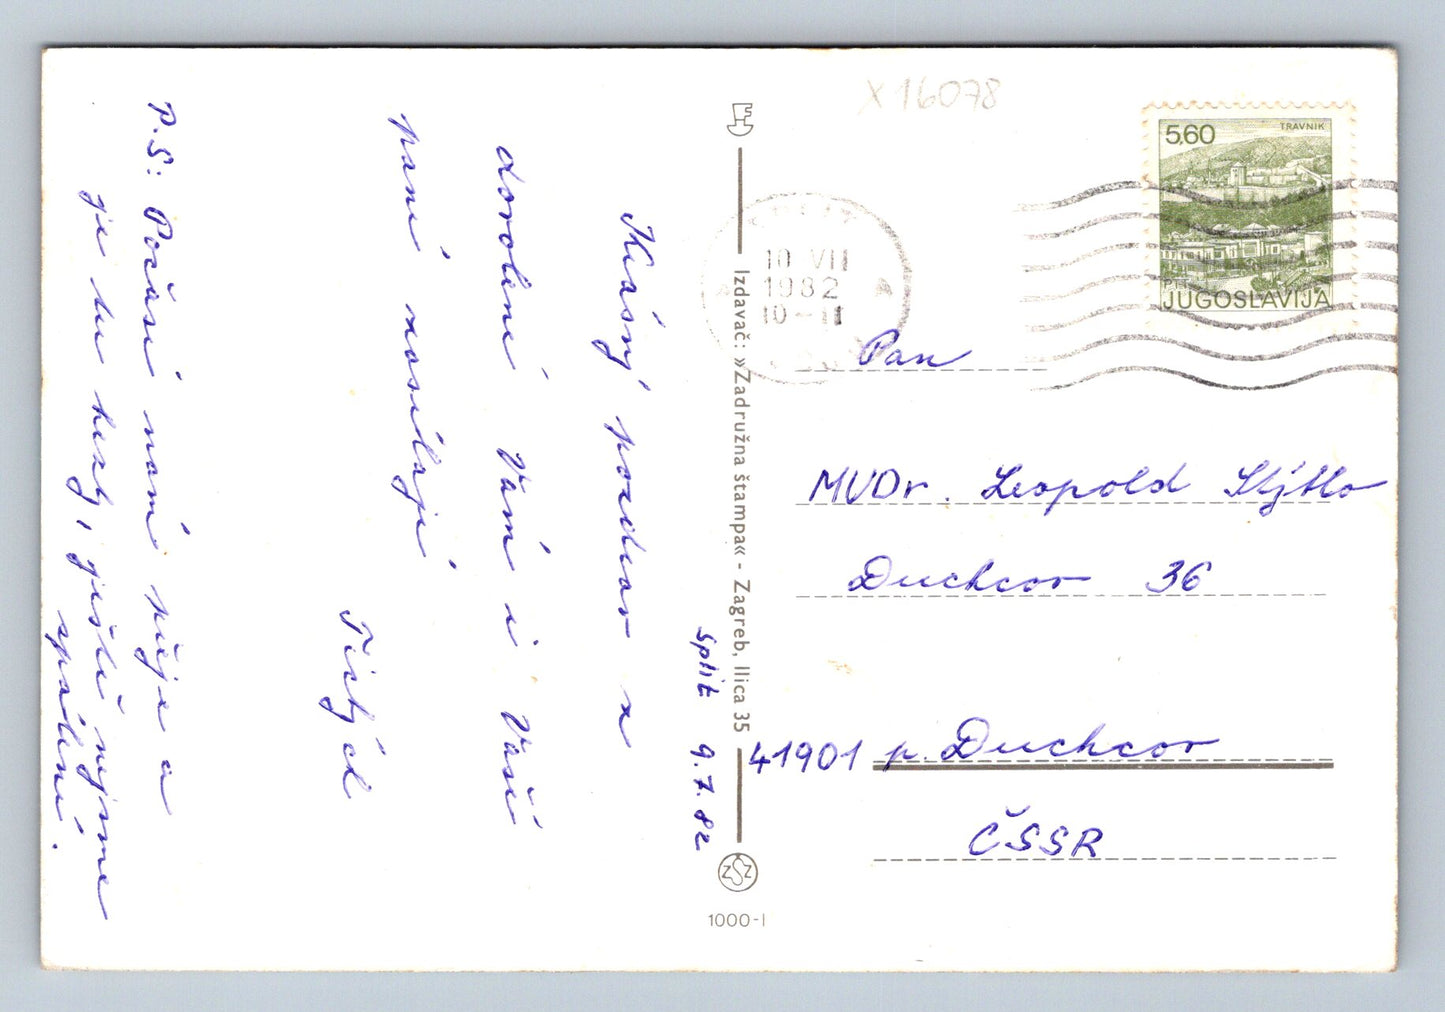 Split 9.7.82
Krásný pozdrav z
dovolené Vám i Vaší
paní zasílají
Tichých
P.S: Počasí nám přeje a
je tu hezky, ještě nejsme
spálení.
Izdavač: »Zadružna štampa« - Zagreb, Ilica 35
ZSZ
1000-I
X 16078
5,60 TRAVNIK
PTT
JUGOSLAVIJA
10 VII
1982
10-11
A
Pan
MVDr. Leopold Stýblo
Duchcov 36
41901 p. Duchcov
ČSSR